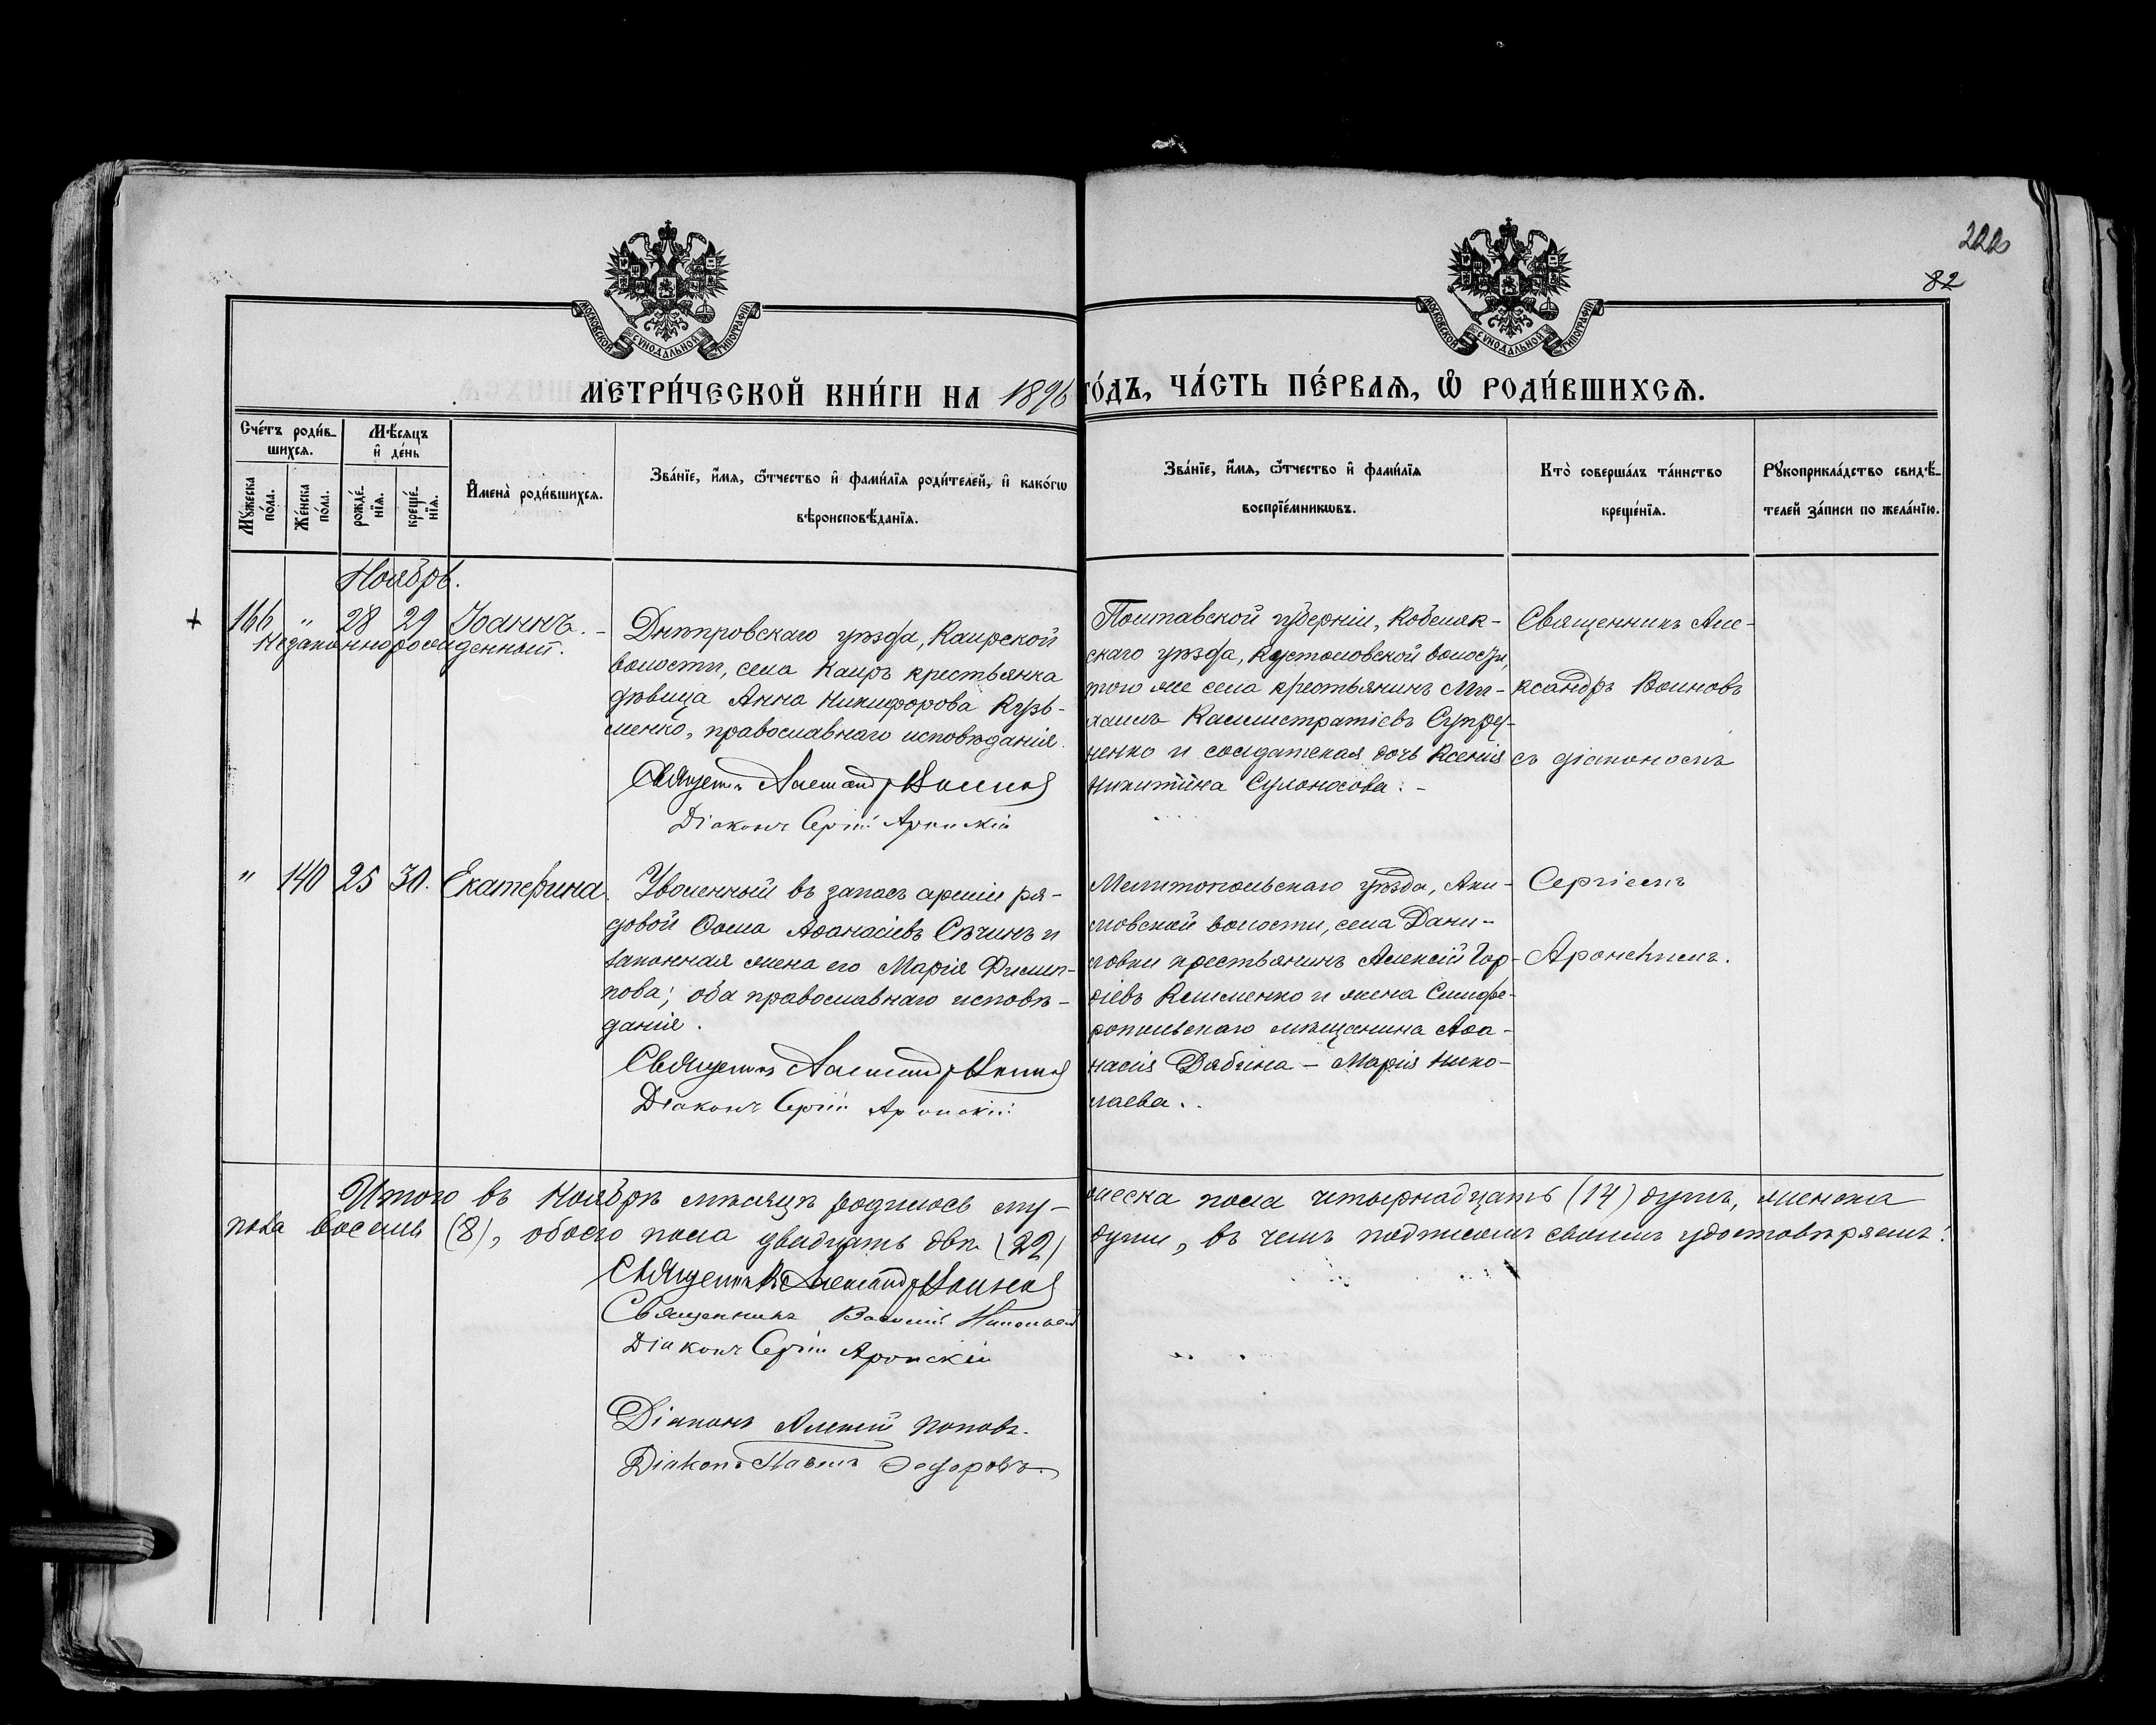 222
82
МОСКОВСКОЙ СѴНОДАЛЬНОЙ ТИПОГРАФІИ
МОСКОВСКОЙ СѴНОДАЛЬНОЙ ТИПОГРАФІИ
МЕТРИ́ЧЕСКОЙ КНИ́ГИ НА 1896 ГО́ДЪ, ЧА́СТЬ ПЕ́РВАѦ, Ѡ҆ РОДИ́ВШИХСѦ.
Сче́тъ роди́в-
шихсѧ.
Мѣ́сяцъ
и҆ де́нь
Мꙋ́жеска по́ла.
Же́нска по́ла.
рожде́-
нїѧ.
креще́-
нїѧ.
И҆мена̀ роди́вшихсѧ.
Зва́нїе, и҆́мѧ, ѻ҆́тчество и҆ фами́лїѧ роди́телей, и҆ како́гѡ
вѣроисповѣ́данїѧ.
Зва́нїе, и҆́мѧ, ѻ҆́тчество и҆ фами́лїѧ
воспрїе́мникѡвъ.
Кто̀ соверша́лъ та́инство
креще́нїѧ.
Рꙋкоприкла́дство свидѣ́-
телей за́писи по жела́нїю.
Ноябрь.
+ 166 " 28 29 Іоаннъ. -
Незаконнорожденный.
Днѣпровскаго уѣзда, Каирской
волости, села Каиръ крестьянка
дѣвица Анна Никифорова Кузь-
менко, православнаго исповѣданія.
Священникъ Александръ Воиновъ
Діаконъ Сергій Аронскій
Полтавской губерніи, Кобеляк-
скаго уѣзда, Кустоловской волости,
того же села крестьянинъ Ми-
хаилъ Каллистратіевъ Супру-
ненко и солдатская дочь Ксенія
Никитина Сулоносова. -
Священникъ Але-
ксандръ Воиновъ
съ діакономъ
" 140 25 30. Екатерина.
Уволенный въ запасъ арміи ря-
довой Ѳома Аѳанасіевъ Сѣчинъ и
законная жена его Марія Филип-
пова; оба православнаго исповѣ-
данія.
Священникъ Александръ Воиновъ
Діаконъ Сергій Аронскій
Мелитопольскаго уѣзда, Аки-
мовской волости, села Дани-
ловки крестьянинъ Алексій Гор-
діевъ Клименко и жена Симфе-
ропольскаго мѣщанина Аѳа-
насія Дябина - Марія Нико-
лаева.
Сергіемъ
Аронскимъ.
Итого въ Ноябрѣ мѣсяцѣ родилось му-жеска пола четырнадцать (14) душъ, женска
пола восемь (8), обоего пола двадцать двѣ (22) души, въ чемъ подписомъ своимъ удостовѣряемъ:
Священникъ Александръ Воиновъ
Священникъ Василій
Діаконъ Сергій Аронскій
Діаконъ Алексій Поповъ.
Діаконъ Павелъ Ѳедоровъ.